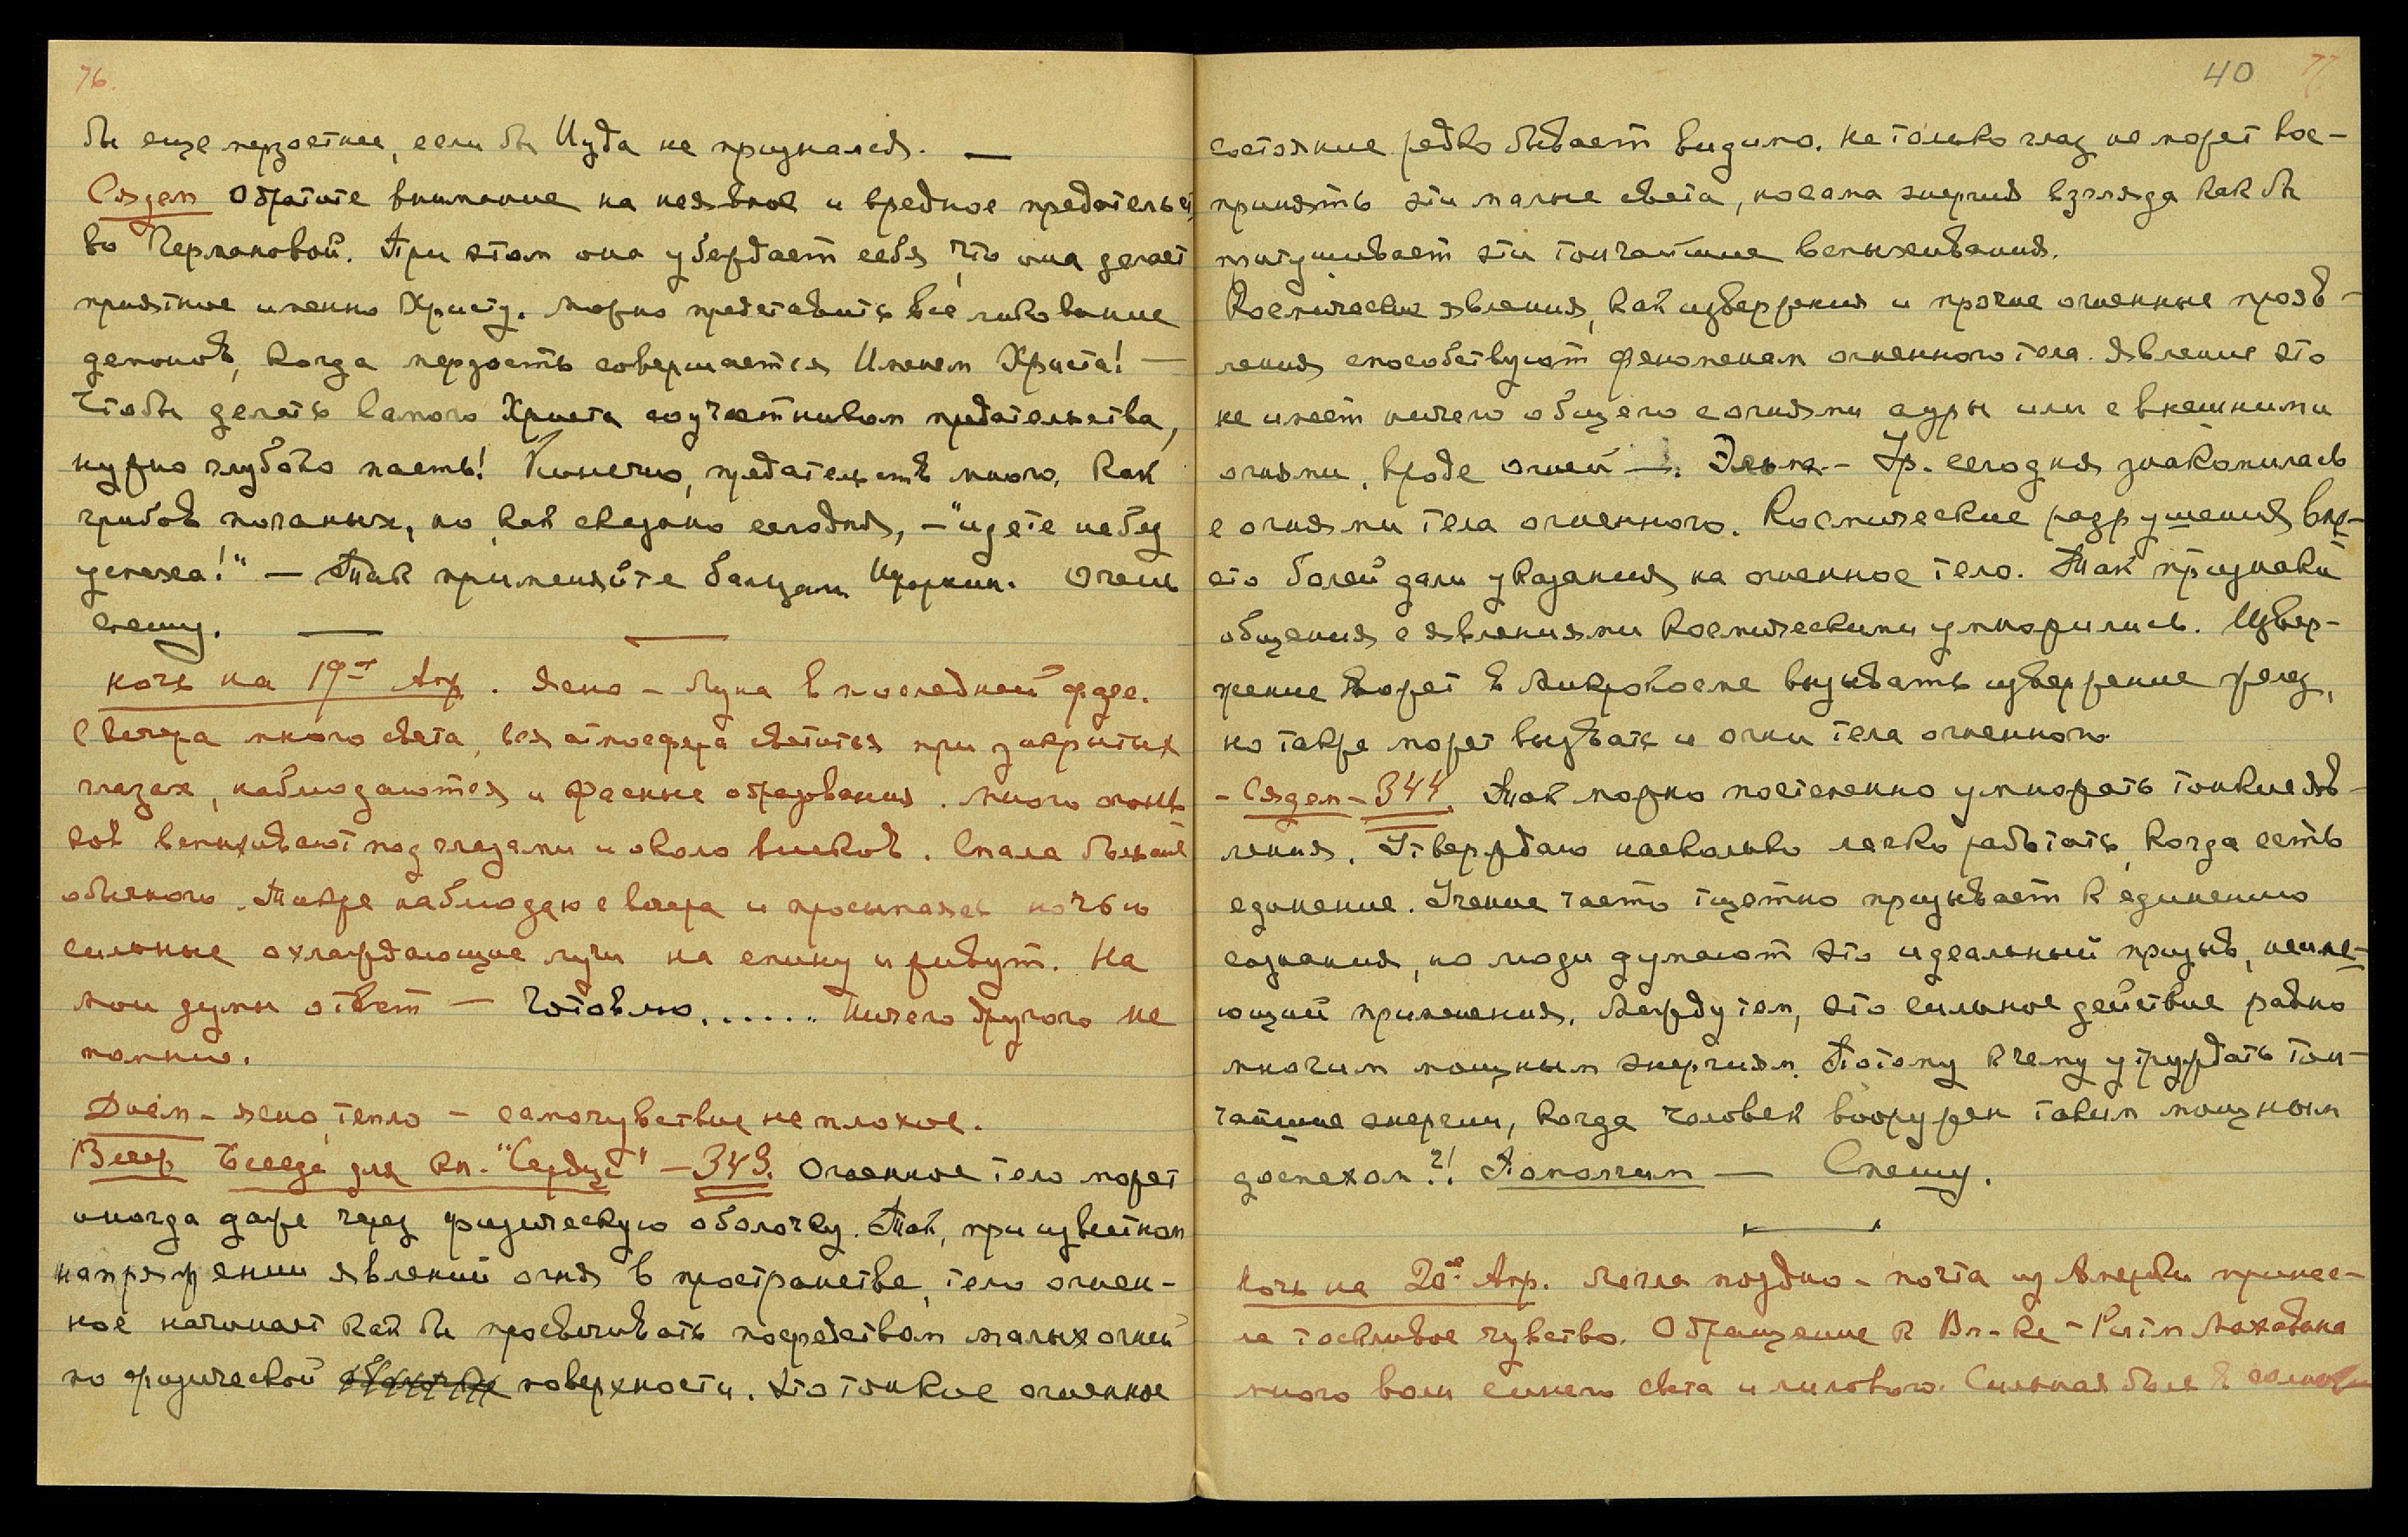 76.
бы еще мерзостнее, если бы Иуда не признался. —
Сядем Обратите внимание на неявное и вредное предательст
во Германовой. При этом она убеждает себя, что она делает
приятное именно Христу. Можно представить все ликование
демонов, когда мерзость совершается Именем Христа! —
Чтобы делать Самого Христа соучастником предательства,
нужно глубоко пасть! Конечно, предательств много, как
грибов поганых, но, как сказано сегодня, — "идете не без
успеха!" — Так применяйте бальзам. Очень
спешу. —
Ночь на 19-ое Апр. Ясно – Луна в последней фазе.
С вечера много света, вся атмосфера светится при закрытых
глазах, наблюдаются и образования. Много огонь
ков вспыхивают под глазами и около висков. Спала больше
обычного. Также наблюдаю с вечера и просыпаясь ночью
сильные охлаждающие лучи на спину и живот. На
мои думы ответ — Готовлю...... Ничего другого не
помню.
Днем – ясно, тепло – самочувствие не плохое.
Вечер Беседа для кн. "Сердце" – 343. Огненное тело может
иногда даже через физическую оболочку. Так, при известном
напряжении явлений огня в пространстве, тело огнен-
ное начинает как бы просвечивать посредством малых огней
по физической поверхности. Это тонкое огненное
40 77.
состояние редко бывает видимо. Не только глаз не может вос-
принять эти малые света, но сама энергия взгляда как бы
притушивает эти тончайшие вспыхивания.
Космические явления, как извержения и прочие огненные прояв-
ления способствуют феноменам огненного тела. Явление это
не имеет ничего общего с огнями ауры или с внешними
огнями, вроде огней —. – Ур. сегодня знакомилась
с огнями тела огненного. Космические разрушения вме-
сто болей дали указания на огненное тело. Так признаки
общения с явлениями космическими умножились. Извер-
жение может в Микрокосме вызывать извержение желез,
но также может вызвать и огни тела огненного.
– Сядем – 344. Так можно постепенно умножать тонкие яв-
ления. Утверждаю насколько легко работать, когда есть
единение. Учение часто тщетно призывает к единению
сознания, но люди думают это идеальный призыв, неиме-
ющий применения. Между тем, это сильное действие равно
многим мощным энергиям. Потому к чему утруждать тон-
чайшие энергии, когда человек вооружен таким мощным
доспехом?! Поможем — Спешу.
Ночь на 20-ое Апр. Легла поздно – почта из Америки принес-
ла тоскливое чувство. Обращение к Вл-ке –
много волн синего света и лилового. Сильная боль в